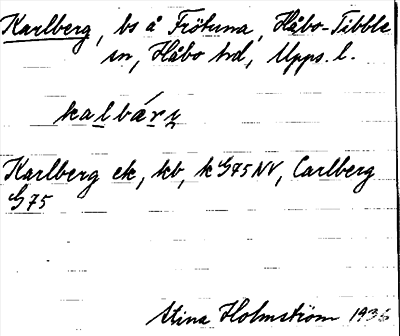 Karlberg, bs å Frötuna, Håbo-Tibble
sn, Håbo hd, Upps. l.
kalbárȷ
Karlberg ek, kb, k G75 NV, Carlberg
G75
Stina Holmström 1936